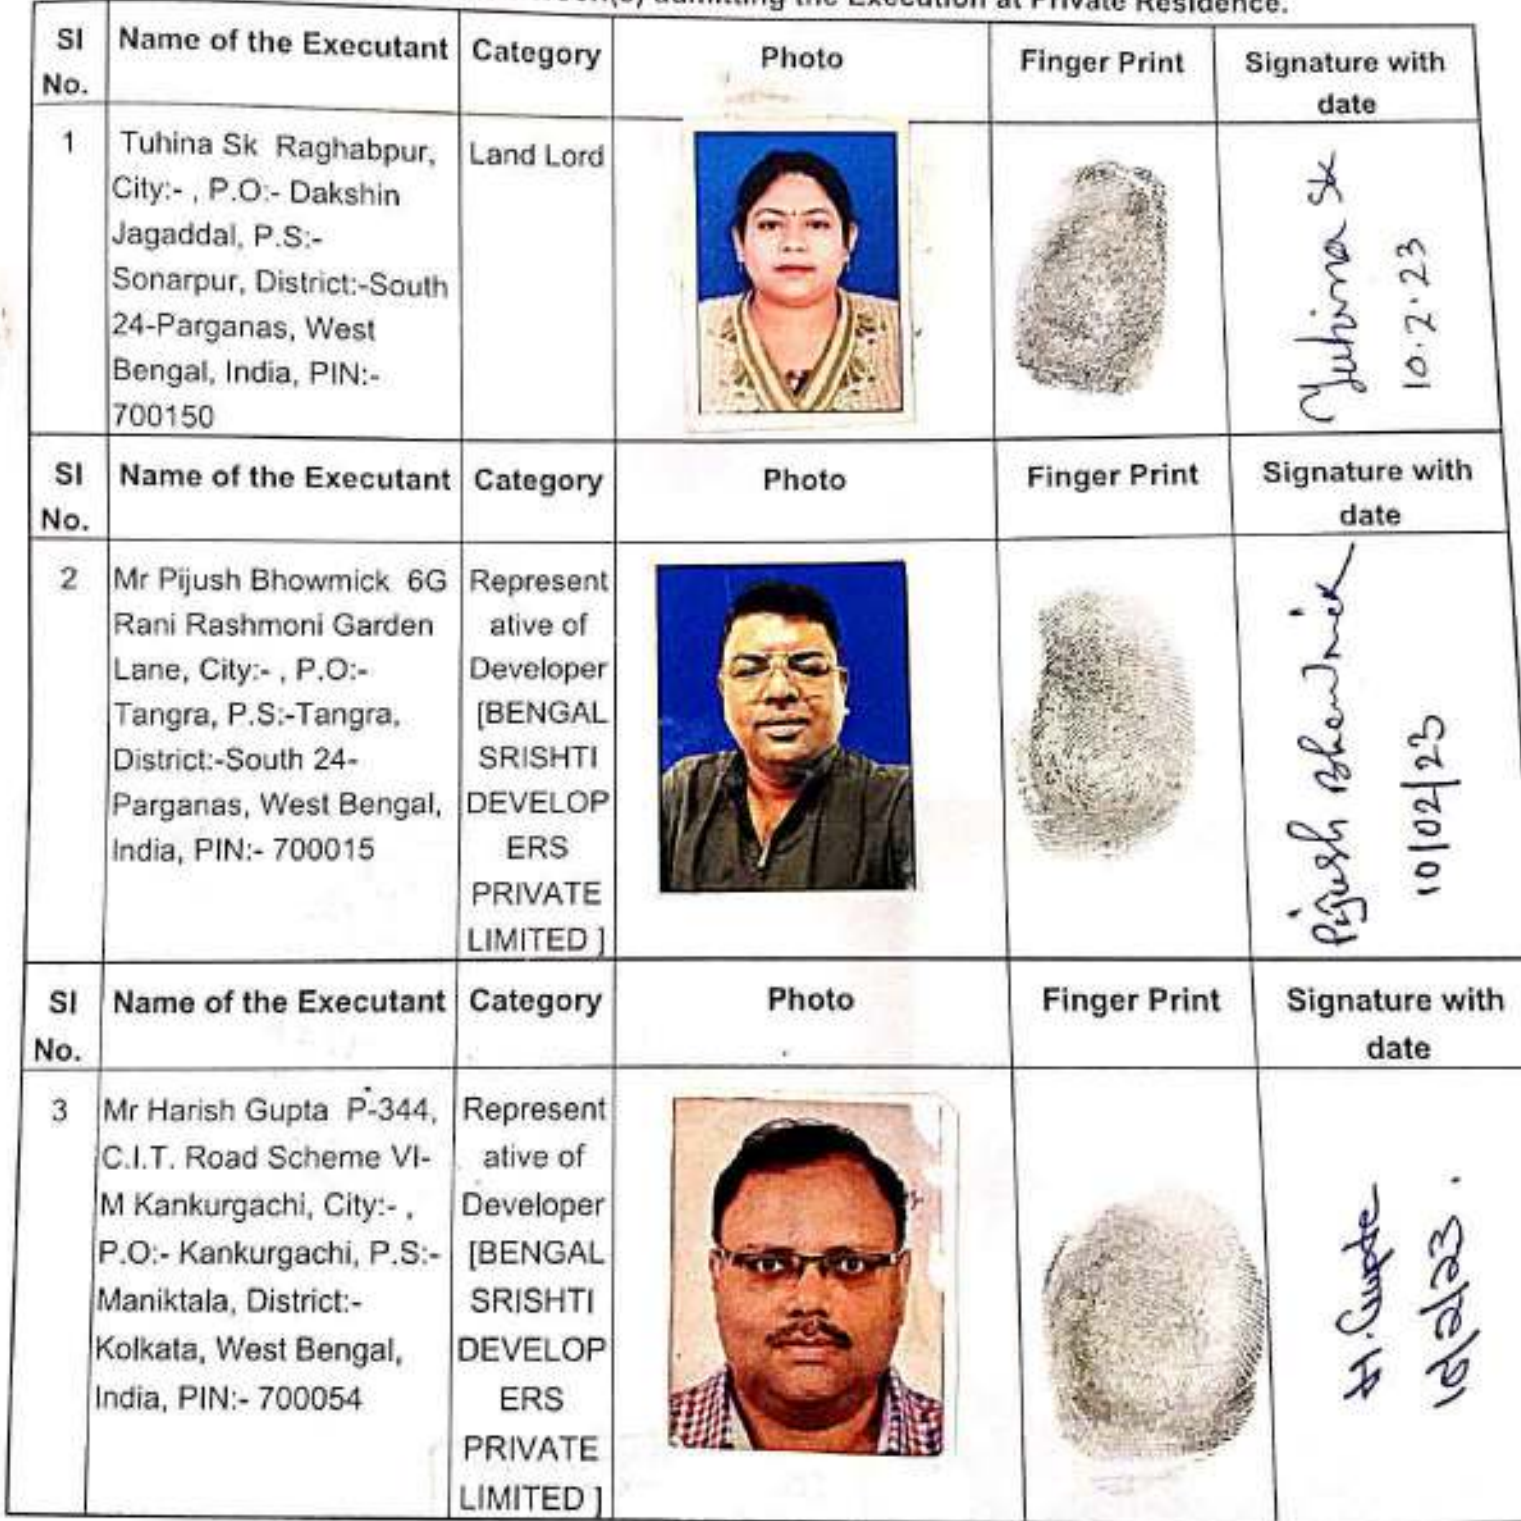 admitting the Execution at Private Residence.
SI No. Name of the Executant Category Photo Finger Print Signature with date
1
Tuhina Sk Raghabpur,
City:- , P.O:- Dakshin
Jagaddal, P.S:-
Sonarpur, District:-South
24-Parganas, West
Bengal, India, PIN:-
700150
Land Lord
Tuhina Sk
10.2.23
SI No. Name of the Executant Category Photo Finger Print Signature with date
2
Mr Pijush Bhowmick 6G
Rani Rashmoni Garden
Lane, City:- , P.O:-
Tangra, P.S:-Tangra,
District:-South 24-
Parganas, West Bengal,
India, PIN:- 700015
Represent
ative of
Developer
[BENGAL
SRISHTI
DEVELOP
ERS
PRIVATE
LIMITED ]
Pijush Bhowmick
10/02/23
SI No. Name of the Executant Category Photo Finger Print Signature with date
3
Mr Harish Gupta P-344,
C.I.T. Road Scheme VI-
M Kankurgachi, City:- ,
P.O:- Kankurgachi, P.S:-
Maniktala, District:-
Kolkata, West Bengal,
India, PIN:- 700054
Represent
ative of
Developer
[BENGAL
SRISHTI
DEVELOP
ERS
PRIVATE
LIMITED ]
H. Gupta
10/2/23.